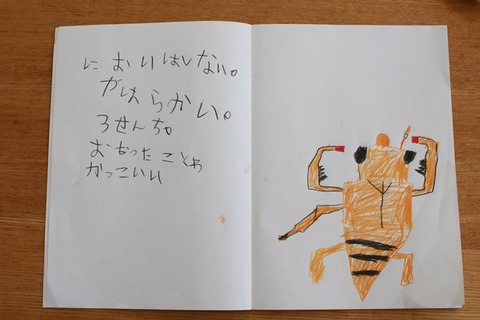 に おいはしない。
かは らかい。
3せんち。
おもったことわ
かっこいい